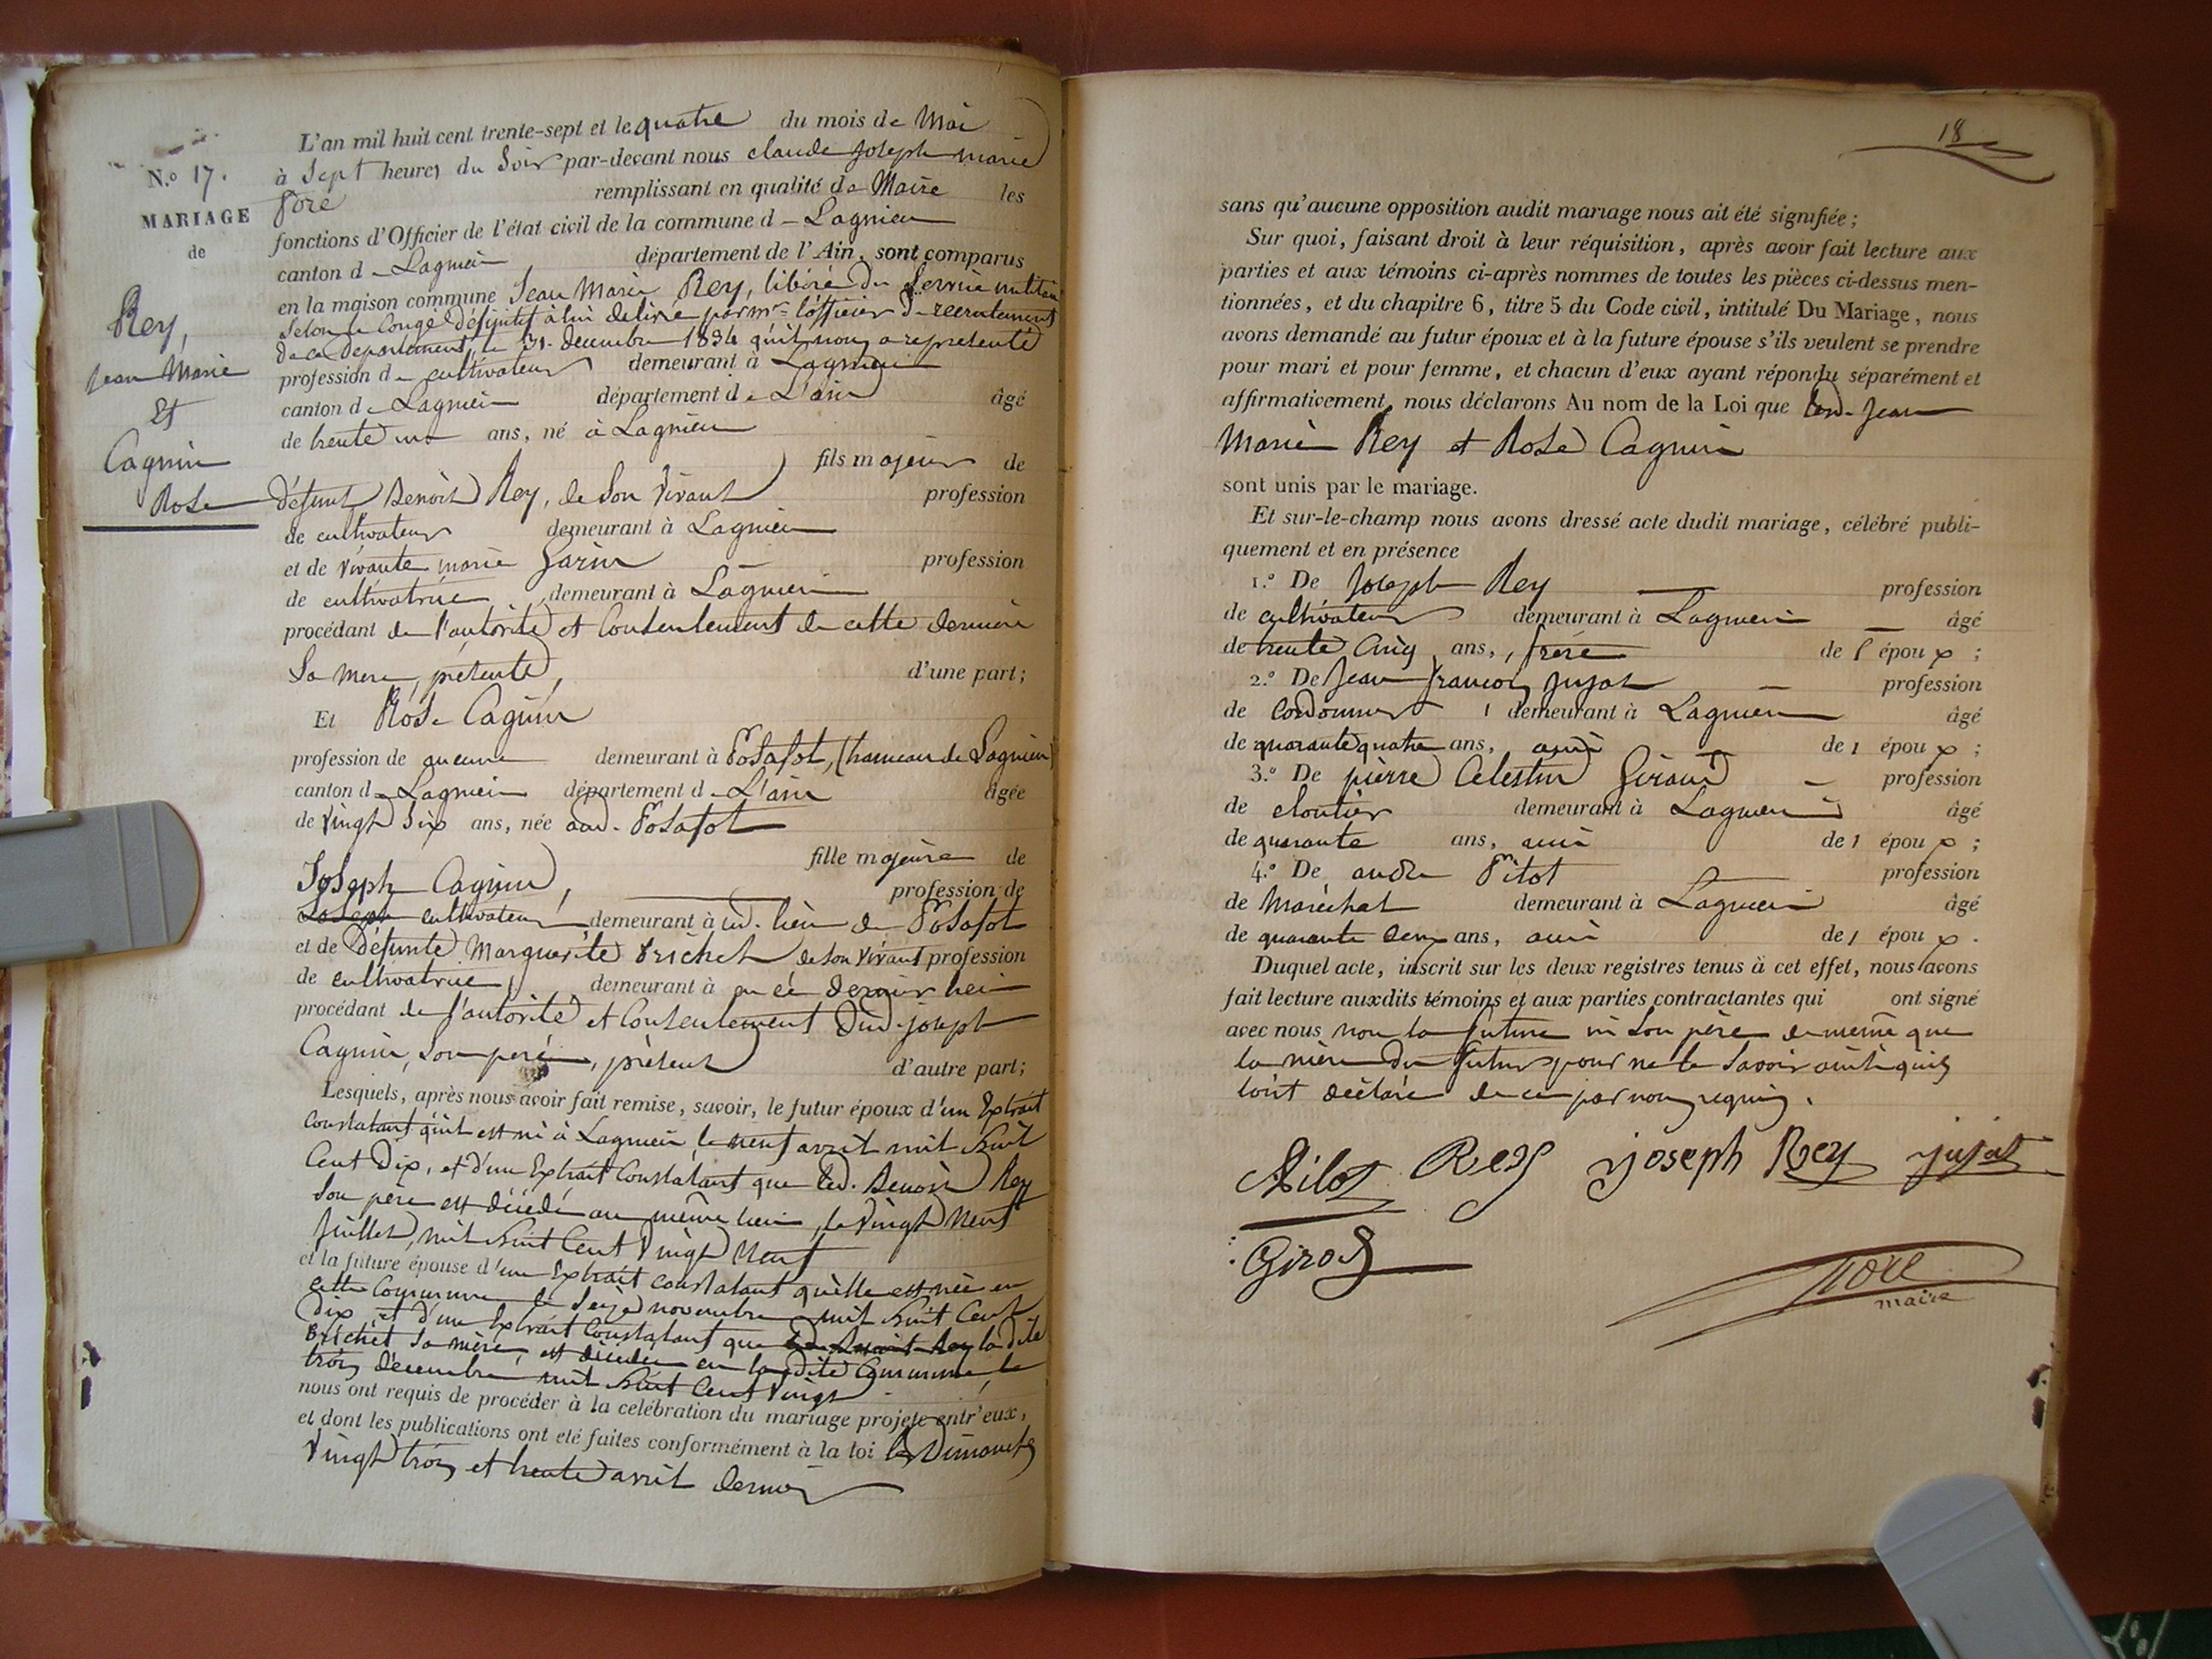 N.° 17.
MARIAGE
de
Rey,
Jean Marie
Et
Cagnin
Rose
L'an mil huit cent trente-sept et le quatre du mois de Mai
à Sept heures du Soir par-devant nous claude Joseph marie
fore remplissant en qualité de Maire les
fonctions d'Officier de l'état civil de la commune d - Lagnieu
canton d - Lagnieu département de l'Ain, sont comparus
en la maison commune Jean Marie Rey, libéré du Service militaire
Selon le Congé définitif à lui délivré par mr. l'officier de recrutement
de ce département, le 31. decembre 1834 qu'il nous a représenté
profession de cultivateur demeurant à Lagnieu
canton de Lagnieu département de L'ain âgé
de trente un ans, né à Lagnieu
fils majeur de
défunt Benoit Rey, de Son Vivant profession
de cultivateur demeurant à Lagnieu
et de vivante marie Garin profession
de cultivatrice demeurant à Lagnieu
procédant de l'autorité et Consentement de cette dernière
Sa mere, présente, d'une part;
Et Rose Cagnin
profession de aucune demeurant à Posafol, (hameau de Lagnieu)
canton de Lagnieu département d - L'ain âgée
de Vingt Six ans, née aud. Posafol
fille majeure de
Joseph Cagnin, profession de
Joseph cultivateur demeurant à ud. lieu de Posafol
et de Défunte Marguerite Brichet de son vivant profession
de cultivatrice, demeurant à au cé dernier lieu
procédant de l'autorité et Consentement dud. joseph
Cagnin, son pere, présent d'autre part;
Lesquels, après nous avoir fait remise, savoir, le futur époux d'un Extrait
Constatant qu'il est né à Lagnieu, le neuf avril mil huit
Cent Dix, et d'un Extrait Constatant que led. Benoit Rey
Son père est décédé au même lieu, le Vingt Neuf
Juillet, mil huit Cent Vingt Neuf
et la future épouse d'un Extrait constatant qu'elle est née en
cette Commune le Seize novembre mil huit Cent
Dix et d'un Extrait Constatant que led. Benoit Rey la dite
Brichet Sa mère, est décédée en la dite Commune, le
trois décembre mil huit Cent Vingt
nous ont requis de procéder à la celébration du mariage projeté entr'eux,
et dont les publications ont eté faites conformément à la loi les Dimanches
Vingt trois et trente avril dernier
18
sans qu'aucune opposition audit mariage nous ait été signifiée;
Sur quoi, faisant droit à leur réquisition, après avoir fait lecture aux
parties et aux témoins ci-après nommes de toutes les pièces ci-dessus men-
tionnées, et du chapitre 6, titre 5 du Code civil, intitulé Du Mariage, nous
avons demandé au futur époux et à la future épouse s'ils veulent se prendre
pour mari et pour femme, et chacun d'eux ayant répondu séparément et
affirmativement, nous déclarons Au nom de la Loi que led. Jean
Marie Rey et Rose Cagnin
sont unis par le mariage.
Et sur-le-champ nous avons dressé acte dudit mariage, célébré publi-
quement et en présence
1.° De Joseph Rey profession
de cultivateur demeurant à Lagnieu âgé
de trente Cinq ans, frère de l'époux;
2.° De Jean françois Jujat profession
de Cordonnier demeurant à Lagnieu âgé
de quarante quatre ans, ami de l époux;
3.° De pierre Celestin Giraud profession
de cloutier demeurant à Lagnieu âgé
de quarante ans, ami de l époux;
4.° De andre Pitot profession
de Maréchal demeurant à Lagnieu âgé
de quarante deux ans, ami de l époux.
Duquel acte, inscrit sur les deux registres tenus à cet effet, nous avons
fait lecture auxdits témoins et aux parties contractantes qui ont signé
avec nous non la future ni Son père de même que
la mère du futur pour ne le Savoir ainsi qu'ils
l'ont déclaré de ce par nous requis.
Rey joseph Rey jujat
Girod
fore
maire